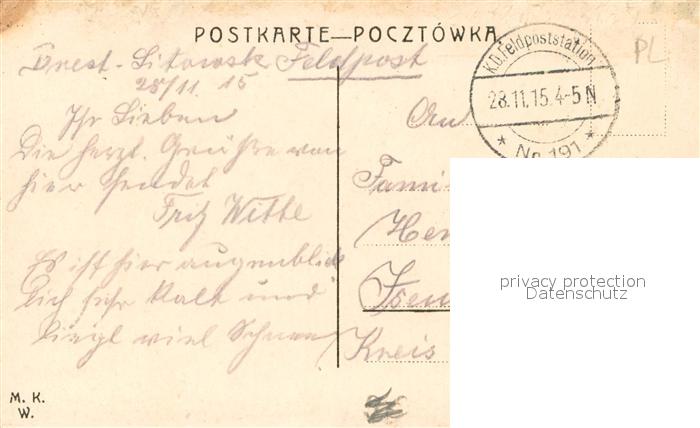 POSTKARTE—POCZTÓWKA
Brest-Litowsk Feldpost
28/11. 15
Ihr Lieben
Die herzl. Grüße von
hier sendet
Fritz Witte
Es ist hier augenblick
lich sehr kalt und
liegt viel Schnee
An
Fami
Kreis
K.D. Feldpoststation
28.11.15. 4-5 N
* No 191 *
PL
privacy protection
Datenschutz
M. K.
W.